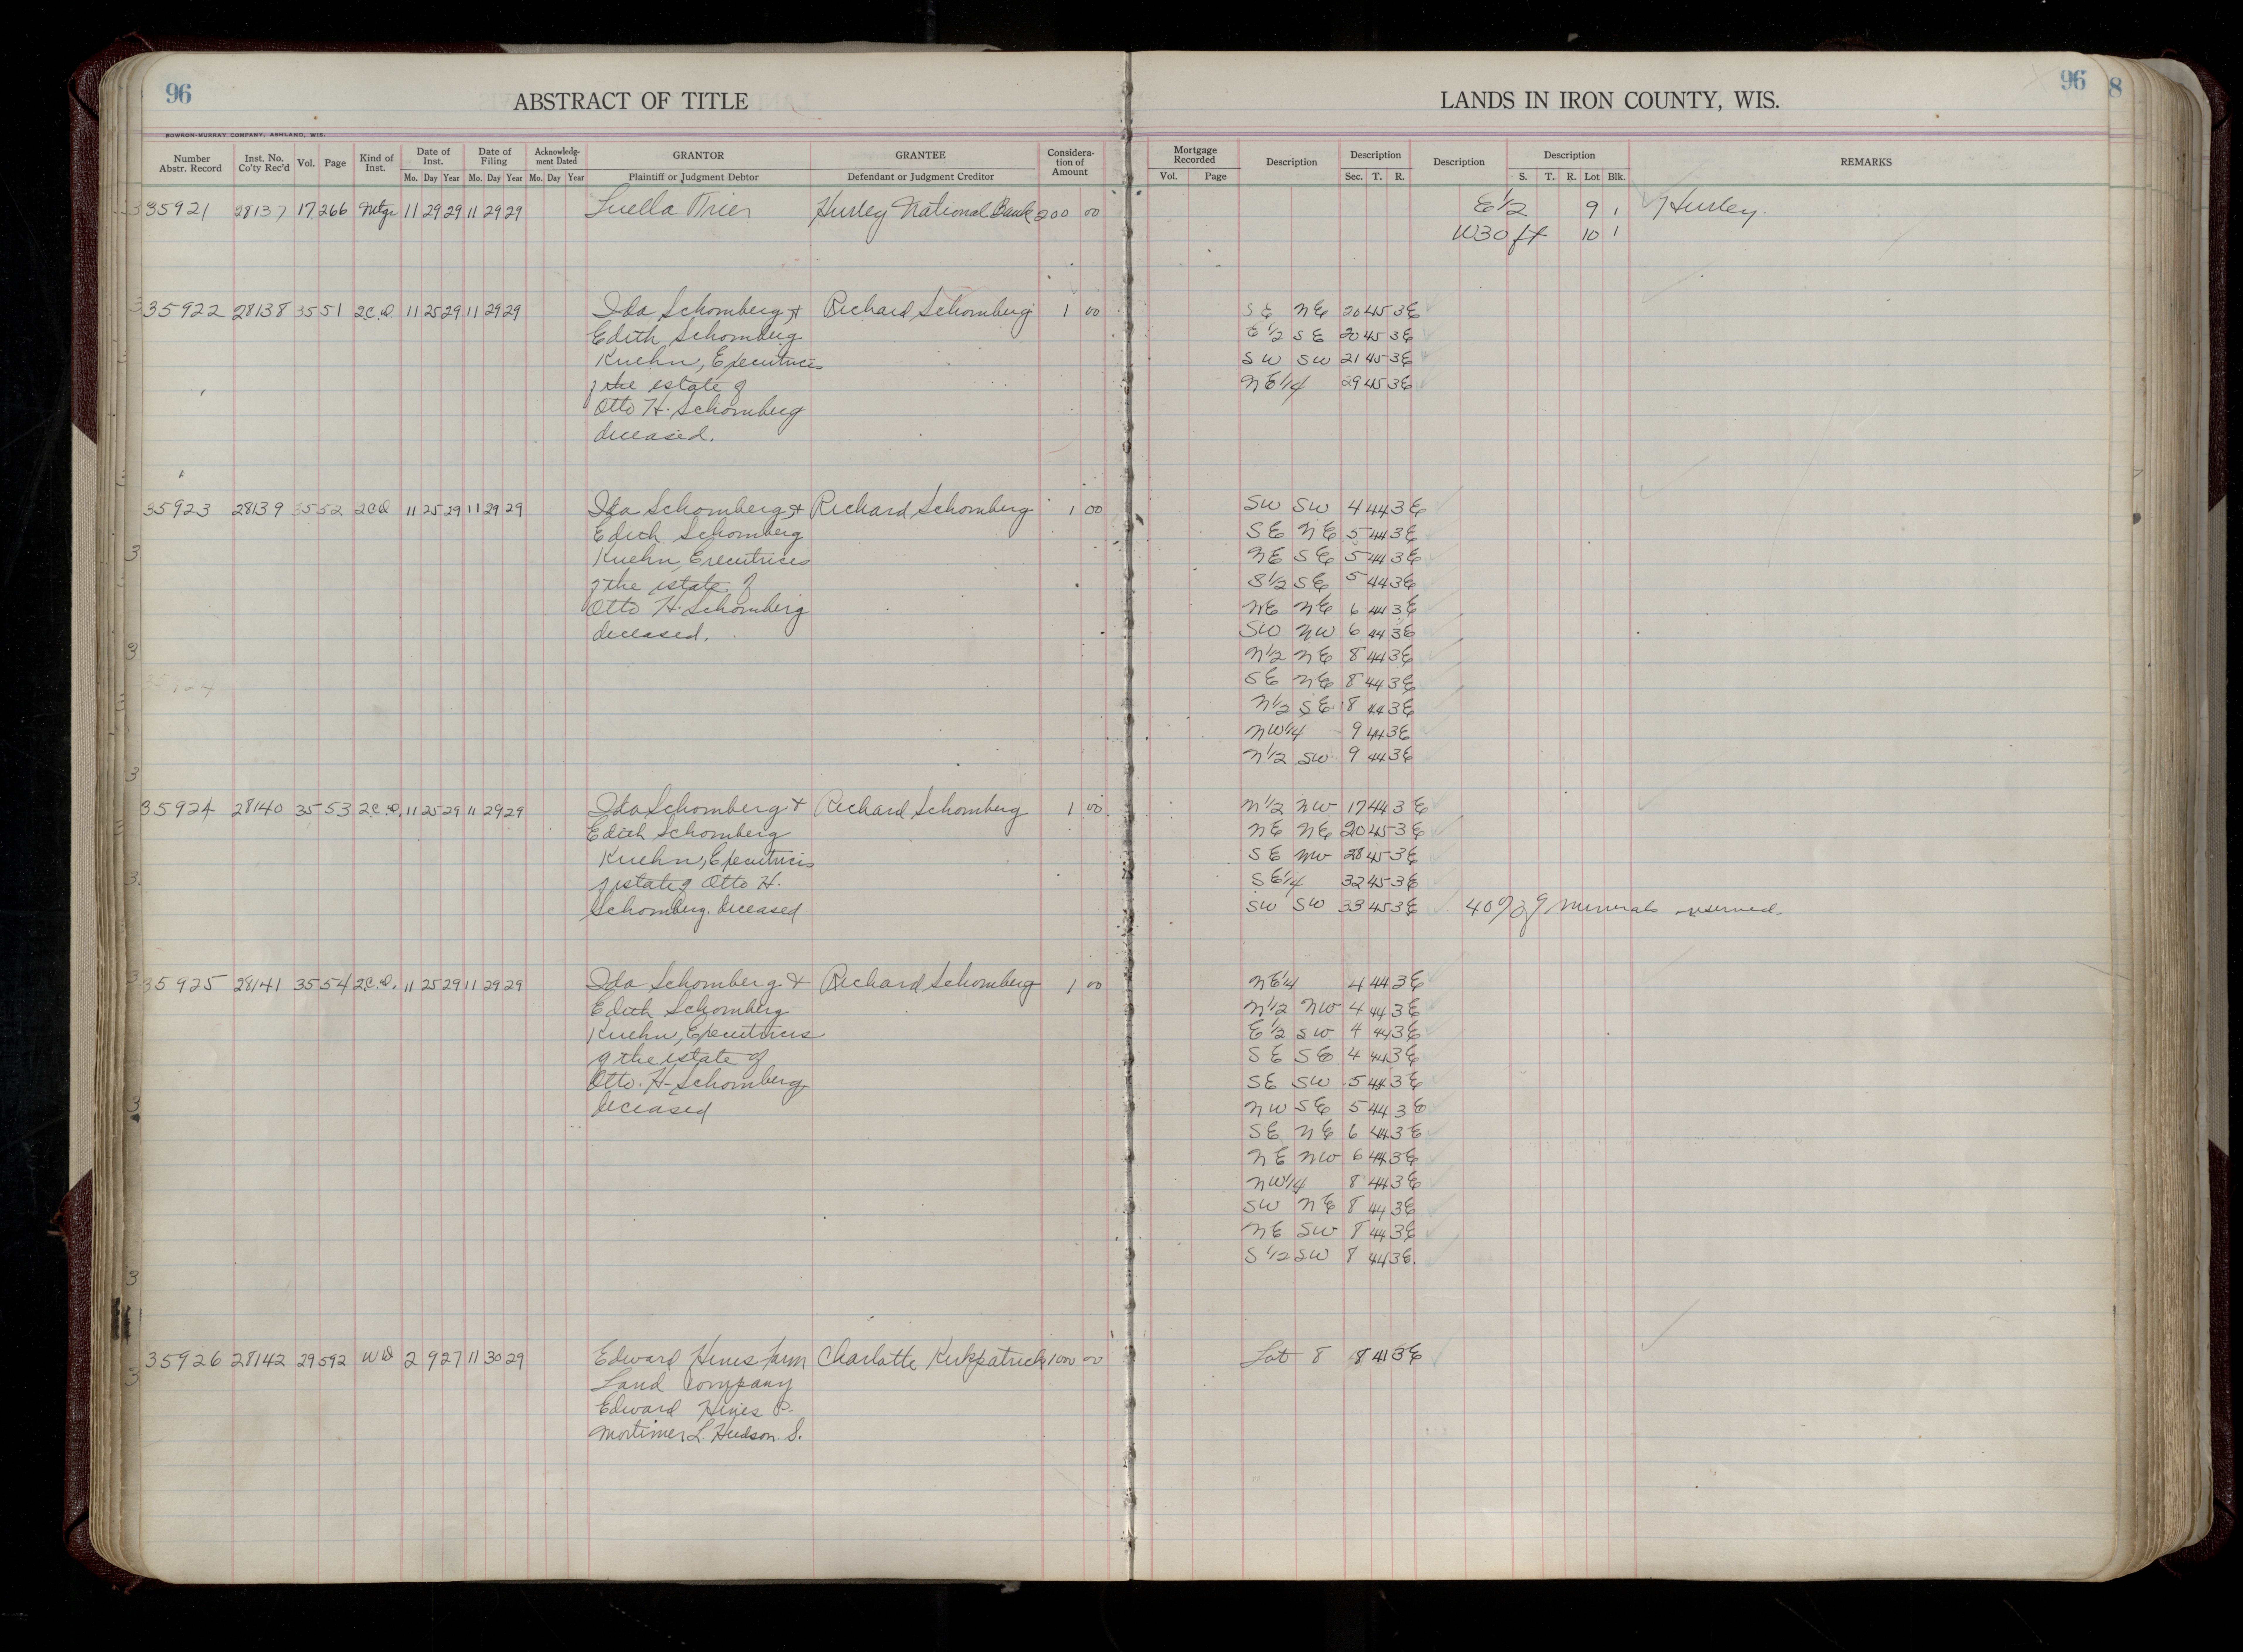 96
ABSTRACT OF TITLE
BOWRON-MURRAY COMPANY, ASHLAND, WIS.
Number Abstr. Record Inst. No. Co'ty Rec'd Vol. Page Kind of Inst. Date of Inst. Date of Filing Acknowledg-ment Dated GRANTOR GRANTEE Considera-tion of Amount
Mo. Day Year Mo. Day Year Mo. Day Year Plaintiff or Judgment Debtor Defendant or Judgment Creditor
35921 28137 17 266 Mtge 11 29 29 11 29 29 Luella Hurley National Bank 200 00
35922 28138 35 51 2.C.D. 11 25 29 11 29 29 Ida Schomberg & Richard Schomberg 1 00
Edith Schomberg
Kuehn, Executrices
of the estate of
Otto H. Schomberg
deceased.
35923 28139 35 52 2CD 11 25 29 11 29 29 Ida Schomberg & Richard Schomberg 1 00
Edith Schomberg
Kuehn, Executrices
of the estate of
Otto H. Schomberg
deceased.
35924
35924 28140 35 53 2.C.D. 11 25 29 11 29 29 Ida Schomberg & Richard Schomberg 1 00
Edith Schomberg
Kuehn, Executrices
of estate of Otto H.
Schomberg. deceased
35925 28141 35 54 2.C.D. 11 25 29 11 29 29 Ida Schomberg & Richard Schomberg 1 00
Edith Schomberg
Kuehn, Executrices
of the estate of
Otto. H. Schomberg
deceased
35926 28142 29 592 WD 2 9 27 11 30 29 Edward Hines Farm Charlotte Kirkpatrick 1000 00
Land Company
Edward Hines P.
Mortimer L. Hudson. S.
LANDS IN IRON COUNTY, WIS.
96
8
Mortgage Recorded Description Description Description Description REMARKS
Vol. Page Sec. T. R. S. T. R. Lot Blk.
E 1/2 9 1 Hurley.
W30 ft 10 1
SE NE 20 45 3E
E 1/2 SE 20 45 3E
SW SW 21 45 3E
NE 1/4 29 45 3E
SW SW 4 44 3E
SE NE 5 44 3E
NE SE 5 44 3E
S 1/2 SE 5 44 3E
NE NE 6 44 3E
SW NW 6 44 3E
N 1/2 NE 8 44 3E
SE NE 8 44 3E
N 1/2 SE 8 44 3E
NW 1/4 9 44 3E
N 1/2 SW 9 44 3E
N 1/2 NW 17 44 3E
NE NE 20 45 3E
SE NW 28 45 3E
SE 1/4 32 45 3E
SW SW 33 45 3E 40% of minerals reserved.
NE 1/4 4 44 3E
N 1/2 NW 4 44 3E
E 1/2 SW 4 44 3E
SE SE 4 44 3E
SE SW 5 44 3E
NW SE 5 44 3E
SE NE 6 44 3E
NE NW 6 44 3E
NW 1/4 8 44 3E
SW NE 8 44 3E
NE SW 8 44 3E
S 1/2 SW 8 44 3E.
Lot 8 8 41 3E